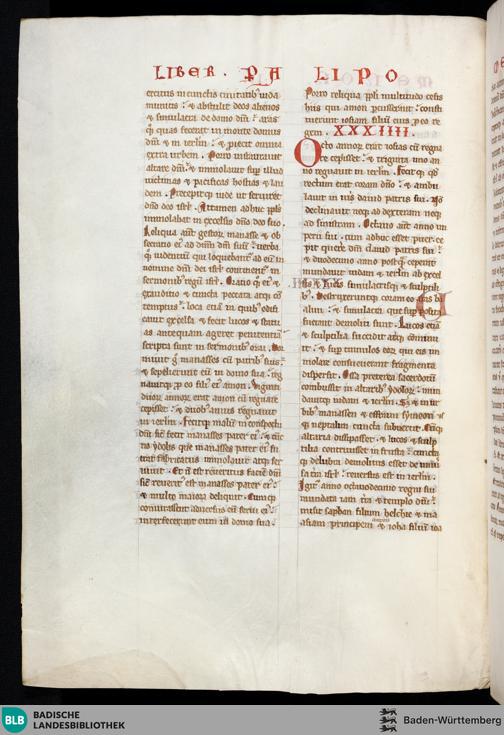 LIBER . PA
LI PO
ercitus in cunctis civitatib' iuda
munitis : & abstulit deos alienos
& simulacra de domo dni : aras
q; quas fecerat in monte domus
dni & in ierlm : & piecit omnia
extra urbem . Porro instauravit
altare dni : & immolavit sup illud
victimas & pacificas hostias & lau
dem . Precepitq; iude ut serviret
dno deo isrl . Attamen adhuc ppls
immolabat in excelsis dno deo suo .
Reliqua aut gestor manasse & ob
secratio ei ad dnm dm suu : verba
q; videntiu qui loquebant ad eu in
nomine dni dei isrl continent in
sermonib' regu isrl . Oratio q; ei & 
exauditio & cuncta peccata atq; co
temptus : loca eta in quib' edifi
cavit excelsa & fecit lucos & statu
as antequam ageret penitentia
scripta sunt in sermonib' ozai . Dor
mivit g manasses cu patrib' suis :
& sepelierunt eu in domo sua : reg
navitq; p eo fili' ei amon . Viginti
duor annor erat amon cu regnare
cepisset : & duob' annis regnavit
in ierlm . Fecitq; malu in conspectu
dni sic fecit manasses pater ei : & cuc
tis ydolis que manasses pater ei fu
erat fabricatus immolavit atq; ser
vivit . Et n est reveritus facie dni
sic reverit' est manasses pater ei :
& multo maiora deliquit . Cumq;
coniurassent adversus eu servi ei :
interfecerunt eum in domo sua .
Porro reliqua ppli multitudo cesis
hiis qui amon pcusserant : consti
tuerunt iosiam filiu eius p eo re
gem . XXXIIII .
Octo annor erat iosias cu regna
re cepisset : & triginta uno an
no regnavit in ierlm . Fecitq; qd
rectum erat coram dno : & ambu
lavit in viis david patris sui . No
declinavit neq; ad dexteram neq;
ad sinistram . Octavo aut anno im
perii sui . cum adhuc esset puer : ce
pit querere dm david patris sui :
& duodecimo anno postq; ceperat
mundavit iudam & ierlm ab excel
sis & lucis simulacrisq; & sculptili
b' . Destruxeruntq; coram eo aras ba
alim : & simulacra que sup posita
fuerant demoliti sunt . Lucos eta
& sculptilia succidit atq; commin
uit : & sup tumulos eor qui eis im
molare consueverant fragmenta
dispersit . Ossa preterea sacerdotu
combussit in altarib' ydolor : mun
davitq; iudam & ierlm . Sz & in ur
bib' manassen & effraim & symeon
& neptalim cuncta subvertit . Cuq;
altaria dissipasset : & lucos & sculp
tilia contrivisset in frusta : cuncta
q; delubra demolitus esset de univ
sa tra isrl : reversus est in ierlm .
Igit' anno octavodecimo regni sui
mundata iam tra & templo dni :
misit saphan filium helchie & ma
asiam principem civitatis & ioha filiu ioa
BLB
BADISCHE
LANDESBIBLIOTHEK
Baden-Württemberg